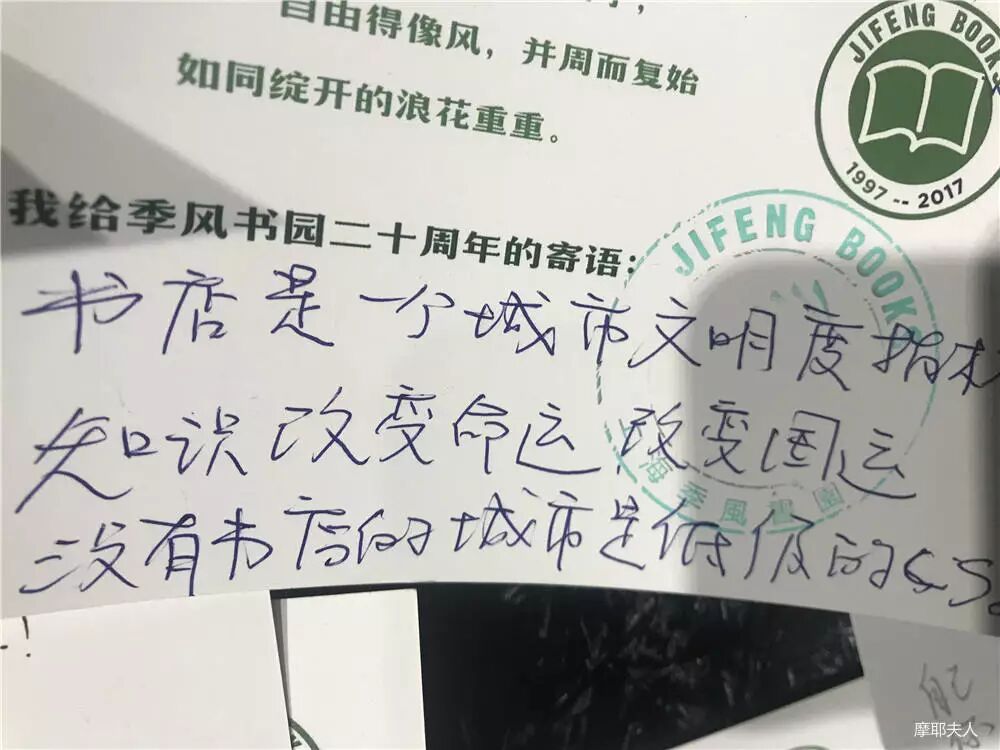 自由得像风，并周而复始
如同绽开的浪花重重。
JIFENG BOOKS
1997 -- 2017
我给季风书园二十周年的寄语：
JIFENG BOOKS
书店是一个城市文明度指标
知识改变命运,改变国运
海季風書園
没有书店的城市是低级的
!
自己
摩耶夫人